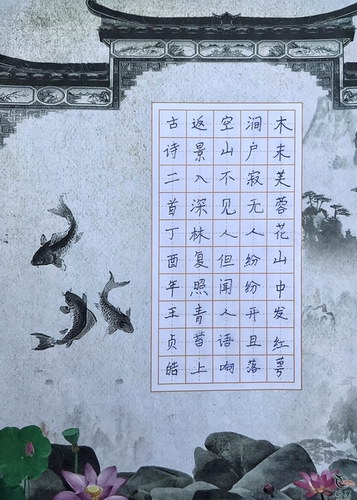 木末芙蓉花山中发红萼
涧户寂无人纷纷开且落
空山不见人但闻人语响
返景入深林复照青苔上
古诗二首丁酉年王贞皓